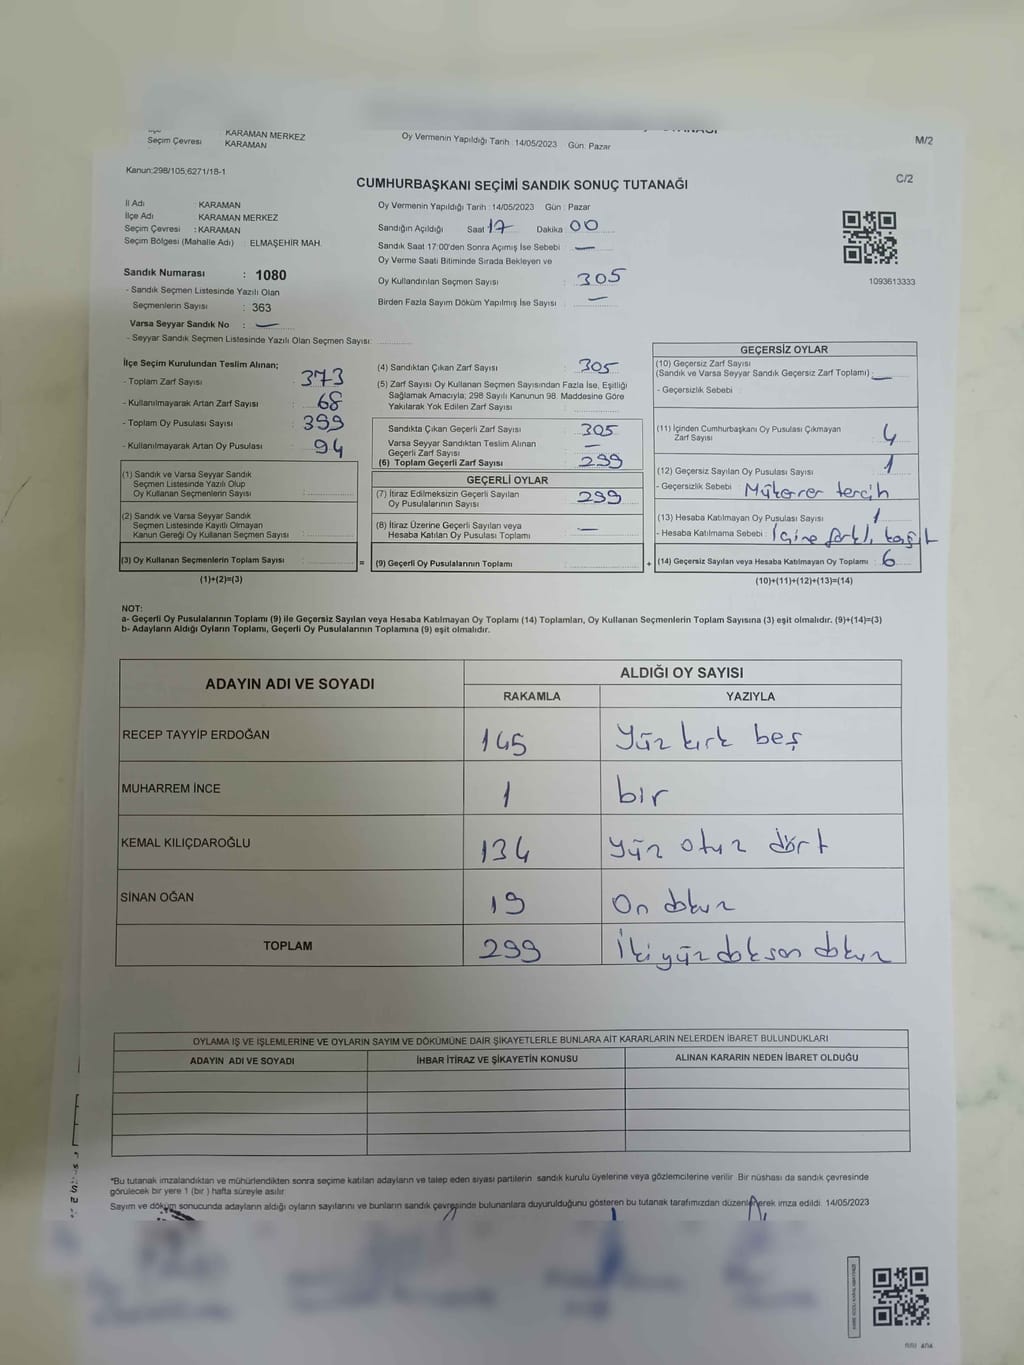 KARAMAN MERKEZ
Seçim Çevresi KARAMAN
Oy Vermenin Yapıldığı Tarih :14/05/2023 Gün: Pazar
M/2
Kanun:298/105,6271/18-1
CUMHURBAŞKANI SEÇİMİ SANDIK SONUÇ TUTANAĞI
C/2
İl Adı KARAMAN
İlçe Adı KARAMAN MERKEZ
Seçim Çevresi : KARAMAN
Seçim Bölgesi (Mahalle Adı) : ELMAŞEHİR MAH.
Sandık Numarası : 1080
- Sandık Seçmen Listesinde Yazılı Olan
Seçmenlerin Sayısı : 363
Varsa Seyyar Sandık No : —
- Seyyar Sandık Seçmen Listesinde Yazılı Olan Seçmen Sayısı:
Oy Vermenin Yapıldığı Tarih :14/05/2023 Gün : Pazar
Sandığın Açıldığı Saat 17 Dakika 00
Sandık Saat 17:00'den Sonra Açımış İse Sebebi : —
Oy Verme Saati Bitiminde Sırada Bekleyen ve
Oy Kullandırılan Seçmen Sayısı : 305
Birden Fazla Sayım Döküm Yapılmış İse Sayısı : —
1093613333
İlçe Seçim Kurulundan Teslim Alınan;
- Toplam Zarf Sayısı : 373
- Kullanılmayarak Artan Zarf Sayısı : 68
- Toplam Oy Pusulası Sayısı : 399
- Kullanılmayarak Artan Oy Pusulası : 94
(1) Sandık ve Varsa Seyyar Sandık
Seçmen Listesinde Yazılı Olup
Oy Kullanan Seçmenlerin Sayısı :
(2) Sandık ve Varsa Seyyar Sandık
Seçmen Listesinde Kayıtlı Olmayan
Kanun Gereği Oy Kullanan Seçmen Sayısı :
(3) Oy Kullanan Seçmenlerin Toplam Sayısı :
(1)+(2)=(3)
(4) Sandıktan Çıkan Zarf Sayısı : 305
(5) Zarf Sayısı Oy Kullanan Seçmen Sayısından Fazla İse, Eşitliği
Sağlamak Amacıyla; 298 Sayılı Kanunun 98. Maddesine Göre
Yakılarak Yok Edilen Zarf Sayısı :
Sandıkta Çıkan Geçerli Zarf Sayısı : 305
Varsa Seyyar Sandıktan Teslim Alınan
Geçerli Zarf Sayısı : —
(6) Toplam Geçerli Zarf Sayısı : 299
GEÇERLİ OYLAR
(7) İtiraz Edilmeksizin Geçerli Sayılan
Oy Pusulalarının Sayısı : 299
(8) İtiraz Üzerine Geçerli Sayılan veya
Hesaba Katılan Oy Pusulası Toplamı : —
= (9) Geçerli Oy Pusulalarının Toplamı :
GEÇERSİZ OYLAR
(10) Geçersiz Zarf Sayısı
(Sandık ve Varsa Seyyar Sandık Geçersiz Zarf Toplamı) : —
- Geçersizlik Sebebi :
(11) İçinden Cumhurbaşkanı Oy Pusulası Çıkmayan
Zarf Sayısı : 4
(12) Geçersiz Sayılan Oy Pusulası Sayısı : 1
- Geçersizlik Sebebi : Mükerrer tercih
(13) Hesaba Katılmayan Oy Pusulası Sayısı : 1
- Hesaba Katılmama Sebebi : İçine farklı kağıt
+ (14) Geçersiz Sayılan veya Hesaba Katılmayan Oy Toplamı : 6
(10)+(11)+(12)+(13)=(14)
NOT:
a- Geçerli Oy Pusulalarının Toplamı (9) ile Geçersiz Sayılan veya Hesaba Katılmayan Oy Toplamı (14) Toplamları, Oy Kullanan Seçmenlerin Toplam Sayısına (3) eşit olmalıdır. (9)+(14)=(3)
b- Adayların Aldığı Oyların Toplamı, Geçerli Oy Pusulalarının Toplamına (9) eşit olmalıdır.
ADAYIN ADI VE SOYADI ALDIĞI OY SAYISI
RAKAMLA YAZIYLA
RECEP TAYYİP ERDOĞAN 145 yüz kırk beş
MUHARREM İNCE 1 bır
KEMAL KILIÇDAROĞLU 134 yüz otuz dört
SİNAN OĞAN 19 On dokuz
TOPLAM 299 İki yüz doksan dokuz
OYLAMA İŞ VE İŞLEMLERİNE VE OYLARIN SAYIM VE DÖKÜMÜNE DAİR ŞİKAYETLERLE BUNLARA AİT KARARLARIN NELERDEN İBARET BULUNDUKLARI
ADAYIN ADI VE SOYADI İHBAR İTİRAZ VE ŞİKAYETİN KONUSU ALINAN KARARIN NEDEN İBARET OLDUĞU
*Bu tutanak imzalandıktan ve mühürlendikten sonra seçime katılan adayların ve talep eden siyasi partilerin sandık kurulu üyelerine veya gözlemcilerine verilir. Bir nüshası da sandık çevresinde
görülecek bir yere 1 (bir ) hafta süreyle asılır.
Sayım ve döküm sonucunda adayların aldığı oyların sayılarını ve bunların sandık çevresinde bulunanlara duyurulduğunu gösteren bu tutanak tarafımızdan düzenlenerek imza edildi. 14/05/2023